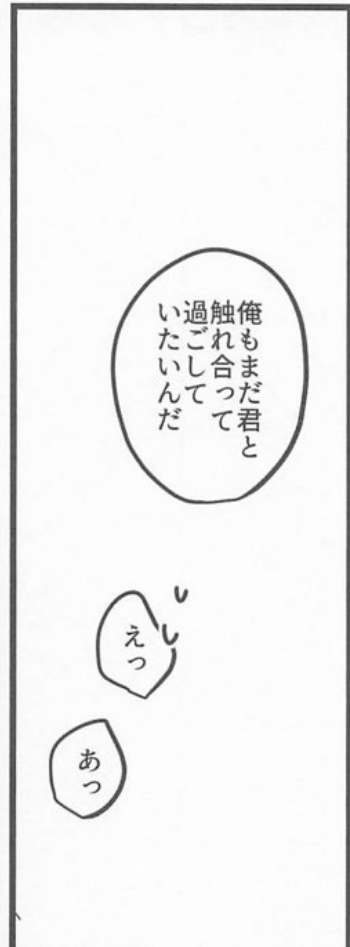 俺もまだ君と
触れ合って
過ごして
いたいんだ
えっ
あっ